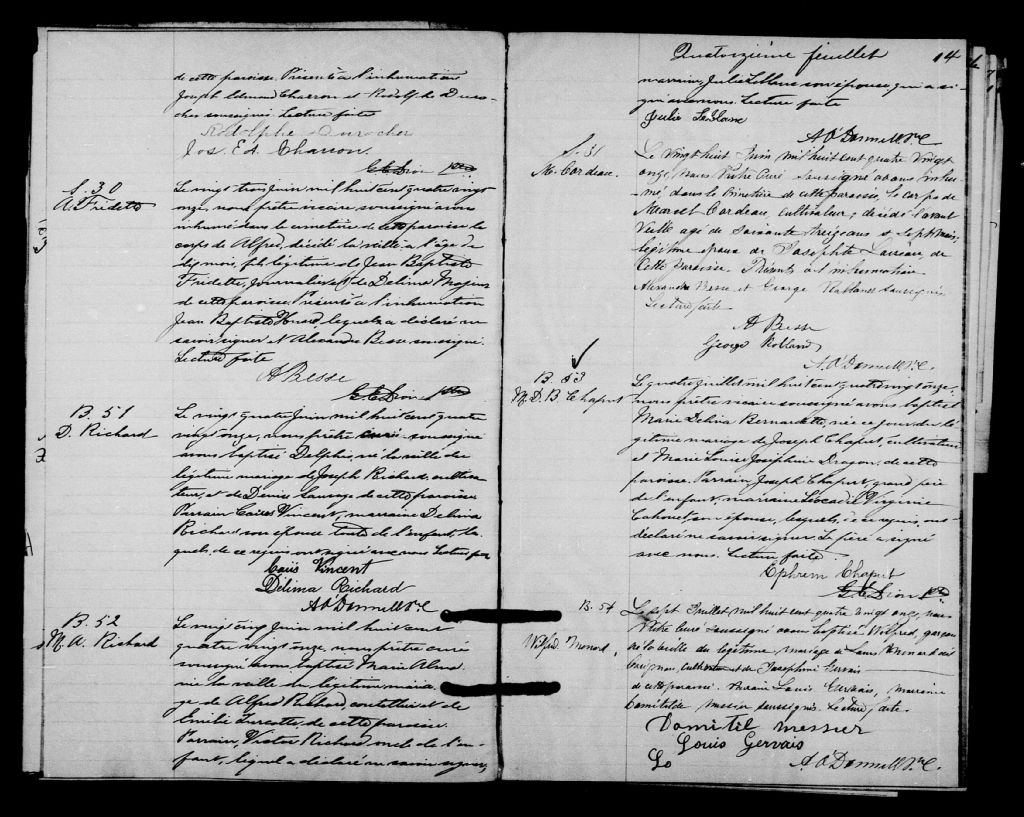 de cette paroisse. Présents à l'inhumation
Joseph Edmond Charron et Rodolphe Duro-
cher soussignés. Lecture faite
Rodolphe Durocher
Jos. Ed. Charron.
Ptre
S. 30
A. Fridette
Le vingt trois Juin mil huit cent quatre vingt
onze, nous prêtre vicaire soussigné avons
inhumé dans le cimetière de cette paroisse le
corps de Alfred, décédé la veille à l'âge de
mois, fils légitime de Jean Baptiste
Fridette, journalier et de Delima
de cette paroisse. Présents à l'inhumation
Jean Baptiste lequel a déclaré ne
savoir signer et Alexandre Besse soussigné.
Lecture faite
A Besse
Ptre
B. 51
D. Richard
Le vingt quatre Juin mil huit cent quatre
vingt onze, nous prêtre curé soussigné
avons baptisé Delphis, né la veille du
légitime mariage de Joseph Richard, cultiva-
teur, et de Denise Sauvage de cette paroisse
Parrain Caïus Vincent, marraine Delima
Richard son épouse tante de l'enfant, les-
quels, de ce requis ont signé avec nous Lecture faite
Caïus Vincent
Délima Richard
A. O'Donnell Ptre C.
B. 52
M. A. Richard
Le vingt cinq Juin mil huit cent
quatre vingt onze, nous prêtre curé
soussigné avons baptisé Marie
née la veille du légitime maria-
ge de Alfred Richard, et de
Emilie Turcotte, de cette paroisse.
Parrain, Victor Richard oncle de l'en-
fant, lequel a déclaré ne savoir signer,
Quatorzième feuillet
14
marraine, Julie Leblanc son épouse qui a si-
gné avec nous. Lecture faite
Julie Leblanc
A. O'Donnell Ptre C.
S. 31
M. Cordeau.
Le vingt huit Juin mil huit cent quatre vingt
onze, nous Prêtre Curé soussigné avons inhu-
mé dans le cimetière de cette paroisse, le corps de
Marcel Cordeau, cultivateur, décédé l'avant
veille âgé de soixante treize ans et sept mois,
légitime époux de Josephte de
cette paroisse. Présents à l'inhumation
Alexandre Besse et George Robland soussignés
Lecture faite
A Besse
George Robland
A. O'Donnell Ptre C.
B. 53
M. D. B Chaput
Le quatre juillet mil huit cent quatre vingt onze,
nous prêtre vicaire soussigné avons baptisé
Marie Delvia Bernadette, née ce jour du lé-
gitime mariage de Joseph Chaput, cultivateur
et Marie Louise Joséphine Dragon, de cette
paroisse. Parrain Joseph Chaput, grand père
de l'enfant, marraine Léocadie Virginie
Cahouet, son épouse, lesquels, de ce requis, ont
déclaré ne savoir signer. Le père a signé
avec nous. Lecture faite
Ephrem Chaput
Ptre
B. 54
Wilfrd. Menard,
Le sept Juillet mil huit cent quatre vingt onze, nous
Prêtre Curé soussigné avons baptisé Wilfred, garçon
né la veille du légitime mariage de Louis Menard
cultivateur et de Josephine Gervais
de cette paroisse. Parrain Louis Gervais, marraine
Domitilde Messier soussignés. Lecture faite.
Domitil messier
Louis Gervais
Lo
A. O'Donnell Ptre C.